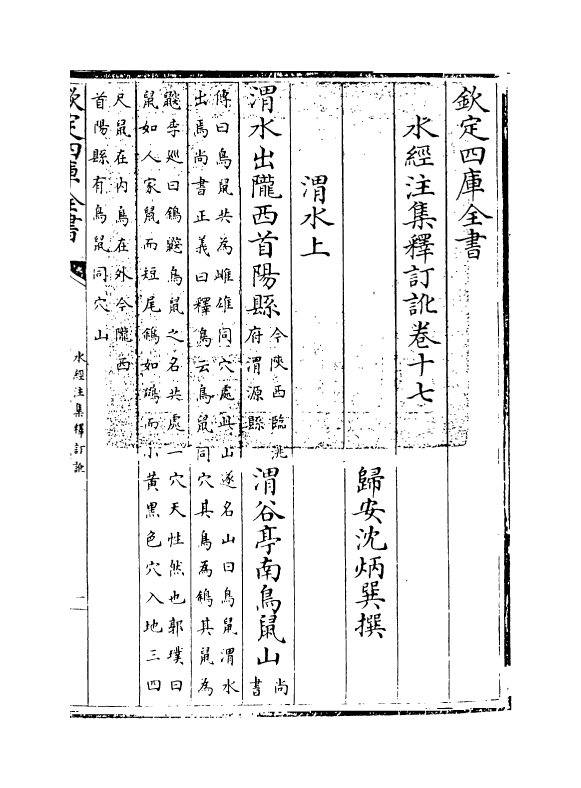 欽定四庫全書
水經注集釋訂訛卷十七
歸安沈炳巽撰
渭水上
渭水出隴西首陽縣今陝西臨洮府渭源縣渭谷亭南鳥鼠山尚書
傳曰鳥鼠共為雌雄同穴處此山遂名山曰鳥鼠渭水
出焉尚書正義曰釋鳥云鳥鼠同穴其鳥為鵌其鼠為
鼵李廵曰鵌鼵鳥鼠之名共處一穴天性然也郭璞曰
鼠如人家鼠而短尾鵌如鵽而小黃黑色穴入地三四
尺鼠在内鳥在外今隴西
首陽縣有鳥鼠同穴山
欽定四庫全書
水經注集釋訂訛